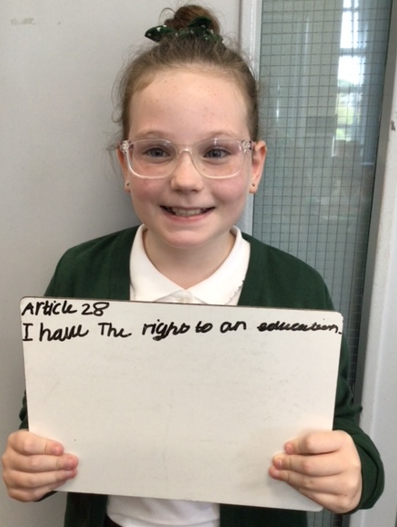 Article 28
I have The right to an education.